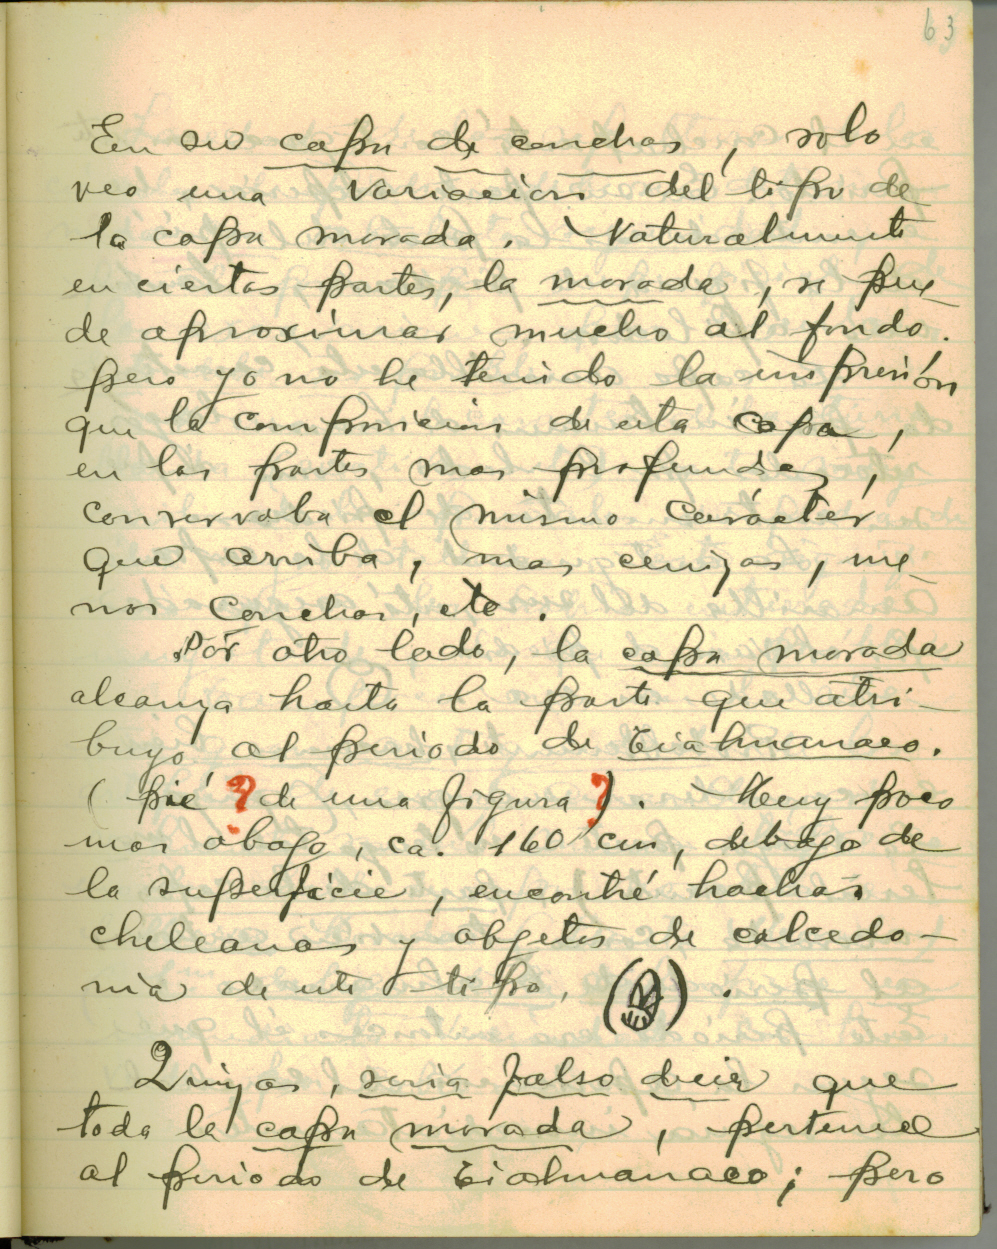 63
En su capa de conchas, solo
veo una variacion del tipo de
la capa morada. Naturalmente
en ciertas partes, la morada, se pue-
de aproximar mucho al fondo.
pero yo no he tenido la impresión
que la composicion de esta capa,
en las partes mas profundas,
conservaba el mismo carácter
que arriba, mas cenizas, me-
nos conchas, etc.
Por otro lado, la capa morada
alcanza hasta la parte que atri-
buyo al periodo de Tiahuanaco.
(pié ? de una figura ?). Muy poco
mas abajo, ca. 160 cm, debajo de
la superficie, encontré hachas
cheleanas y objetos de calcedo-
nia de este tipo, ( ).
Quizas, seria falso decir que
toda la capa morada, pertenece
al periodo de Tiahuanaco; pero